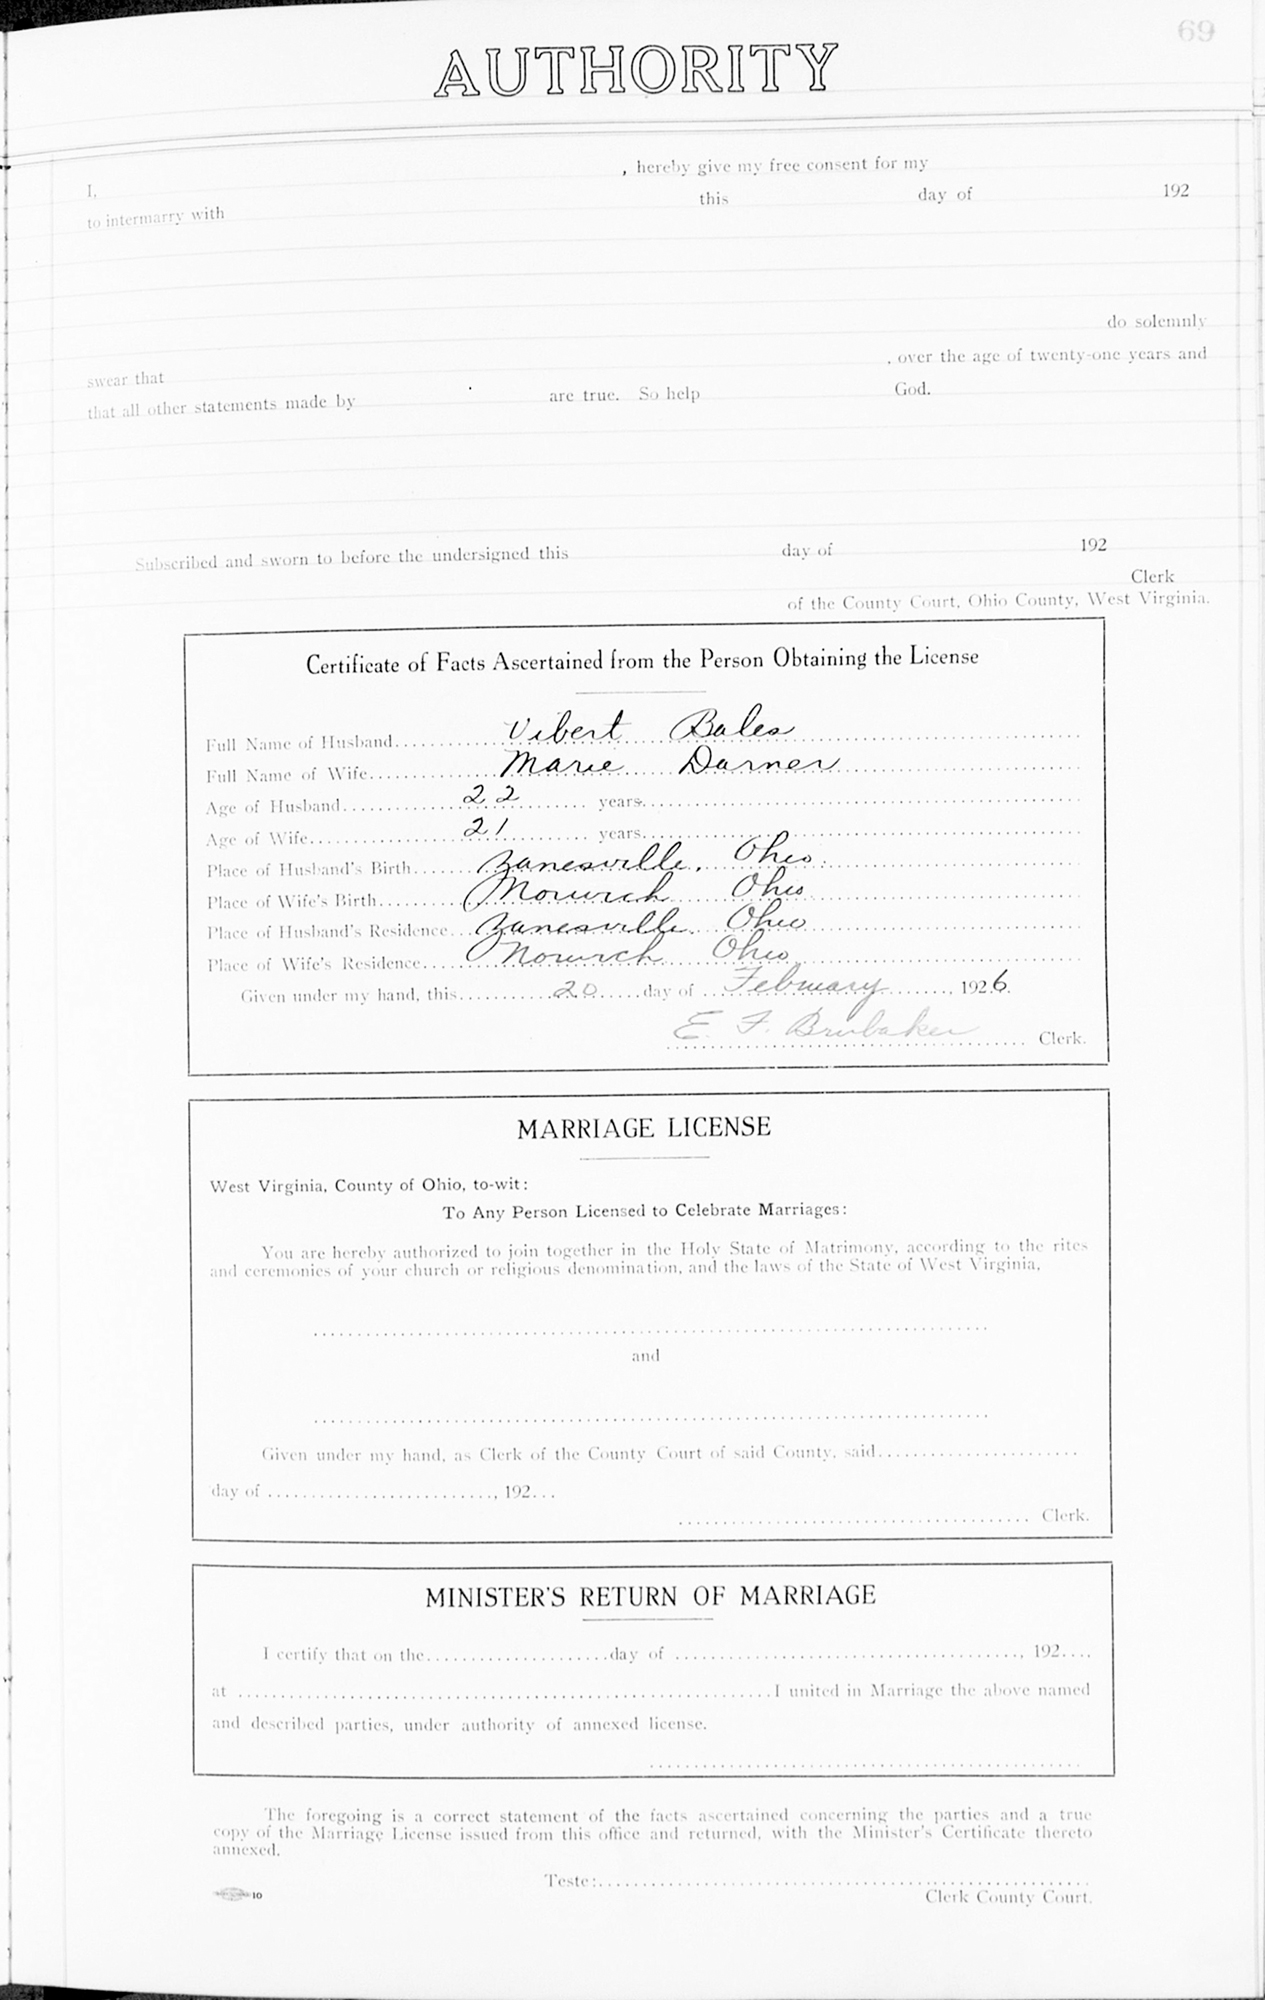 69
AUTHORITY
I, , hereby give my free consent for my
to intermarry with this day of 192
do solemnly
swear that , over the age of twenty-one years and
that all other statements made by are true. So help God.
Subscribed and sworn to before the undersigned this day of 192
Clerk
of the County Court, Ohio County, West Virginia.
Certificate of Facts Ascertained from the Person Obtaining the License
Full Name of Husband Vibert Bales
Full Name of Wife Marie Darner
Age of Husband 22 years
Age of Wife 21 years
Place of Husband's Birth Zanesville, Ohio
Place of Wife's Birth Norwich Ohio
Place of Husband's Residence Zanesville Ohio
Place of Wife's Residence Norwich Ohio
Given under my hand, this 20 day of February, 1926.
E. F. Brubaker Clerk.
MARRIAGE LICENSE
West Virginia, County of Ohio, to-wit:
To Any Person Licensed to Celebrate Marriages:
You are hereby authorized to join together in the Holy State of Matrimony, according to the rites
and ceremonies of your church or religious denomination, and the laws of the State of West Virginia,
and
Given under my hand, as Clerk of the County Court of said County, said
day of , 192
Clerk.
MINISTER'S RETURN OF MARRIAGE
I certify that on the day of , 192
at I united in Marriage the above named
and described parties, under authority of annexed license.
The foregoing is a correct statement of the facts ascertained concerning the parties and a true
copy of the Marriage License issued from this office and returned, with the Minister's Certificate thereto
annexed.
Teste:
10 Clerk County Court.